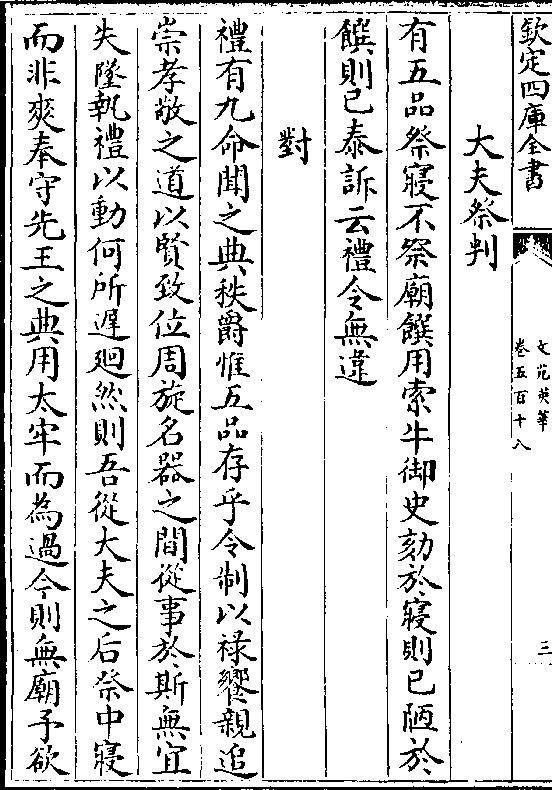 欽定四庫全書
文苑英華
卷五百十八
三
大夫祭判
有五品祭寢不祭廟饌用索牛御史劾於寢則已陋於
饌則已泰訴云禮令無違
對
禮有九命聞之典秩爵惟五品存乎令制以祿饗親追
崇孝敬之道以賢致位周旋名器之間從事於斯無宜
失墜執禮以動何所遲廻然則吾從大夫之后祭中寢
而非爽奉守先王之典用太牢而為過今則無廟予欲